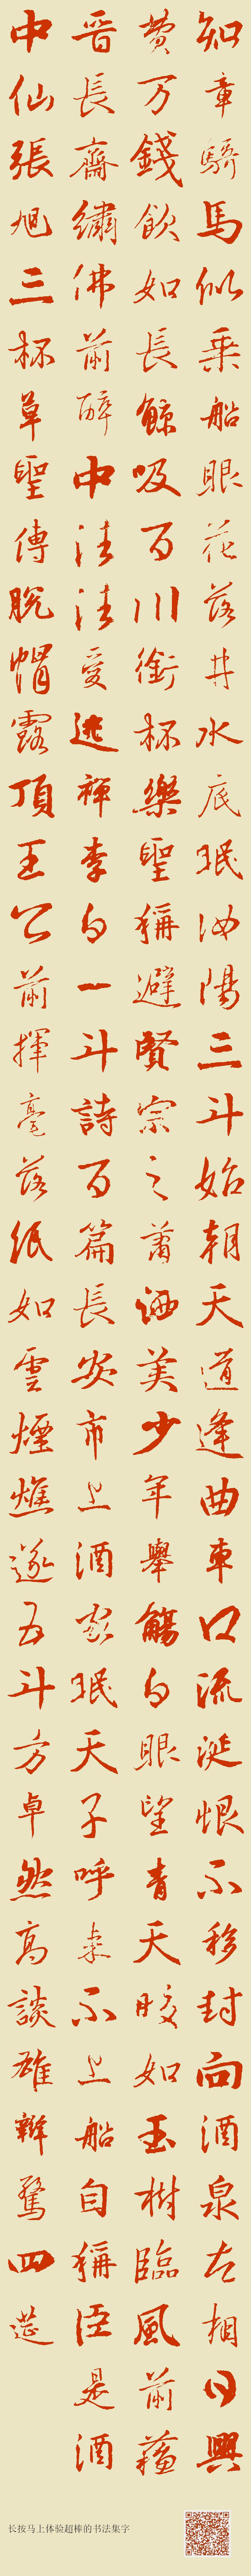 知章騎馬似乘船眼花落井水底眠汝陽三斗始朝天道逢曲車口流涎恨不移封向酒泉左相日興
費万錢飲如長鯨吸百川銜杯樂聖稱避賢宗之蕭洒美少年舉觴白眼望青天皎如玉樹臨風前蘇
晉長齋繡佛前醉中往往愛逃禪李白一斗詩百篇長安市上酒家眠天子呼來不上船自稱臣是酒
中仙張旭三杯草聖傳脫帽露頂王公前揮毫落紙如雲煙燋遂五斗方卓然高談雄辯驚四筵
长按马上体验超棒的书法集字